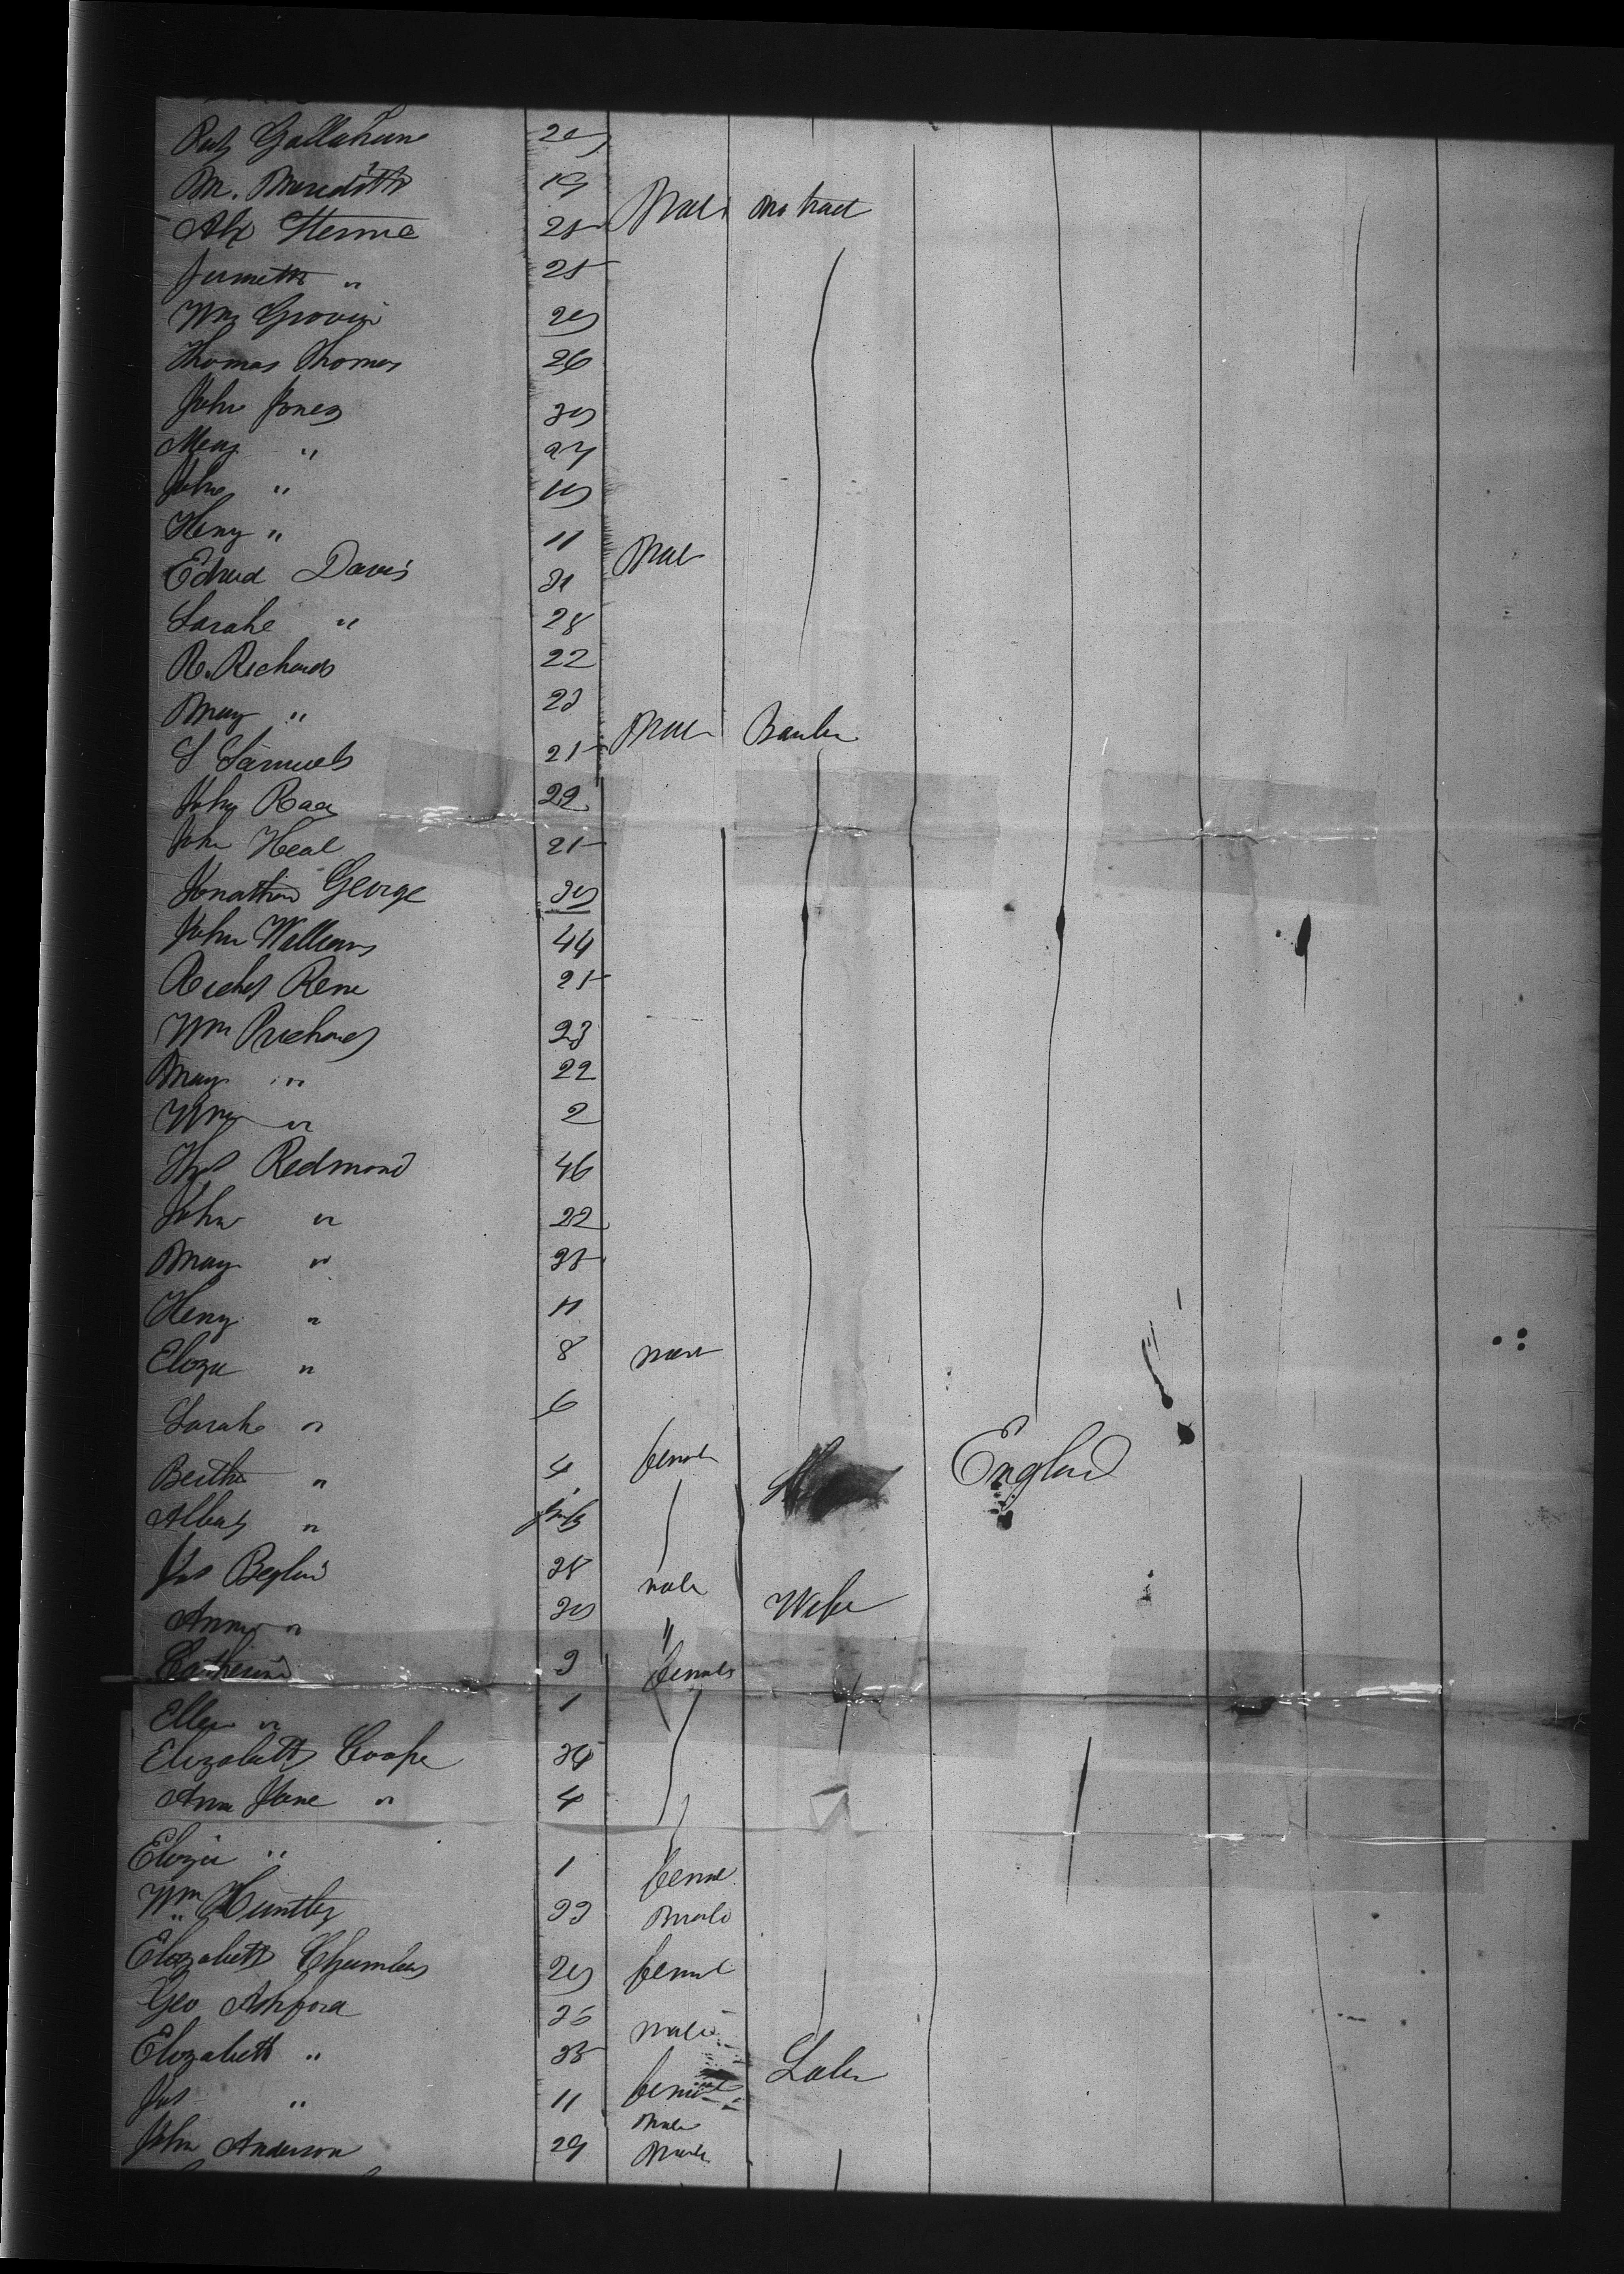 Gallahune 20
M. Meredith 19
Alx Hernie 25 Male no trad
Jennett " 25
Wm Grovir 20
Thomas Thomas 26
John Jones 30
Mary " 27
John " 10
Heny " 11
Edwd Davis 31 Male
Sarah " 28
R. Richards 22
Mary " 23
S Samuels 21 Male
John Raa 22
John Heal 25
Jonathan George 30
John Williams 44
Richd Rene 25
Wm Prichard 23
Mary " 22
Wm " 2
Thos Redmond 46
John " 22
Mary " 35
Heny " 11
Eliza " 8
Sarah " 6
Bertha " 4 female Englad
Albert " Inft
Jas Beglin 28 male
Anna " 30 " Wife
Catherine 3 female
Ellen " 1
Elizabeth Coope 34
Ann Jane " 4
Eliza " 1 female
Wm Huntley 33 Male
Elizabeth Chambers 20 female
Geo Ashford 35 male
Elizabeth " 35 female Labr
Jas " 11 Male
John Anderson 29 Male